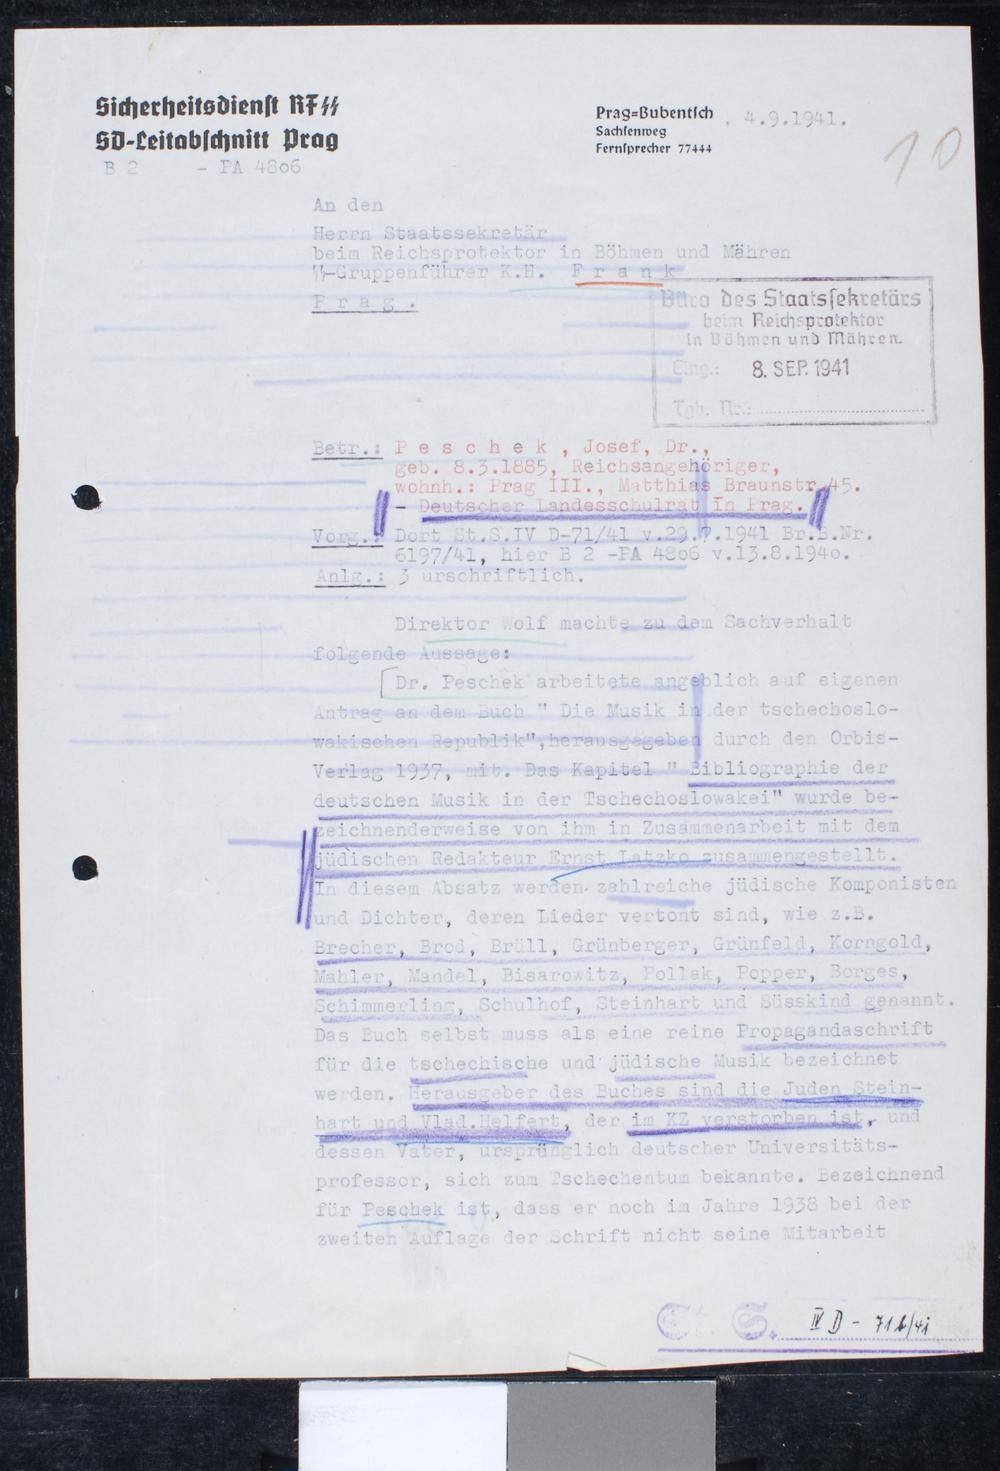 Sicherheitsdienst RFSS
SD-Leitabschnitt Prag
B 2 - PA 4806
Prag-Bubentsch, 4.9.1941.
Sachsenweg
Fernsprecher 77444
10
An den
Herrn Staatssekretär
beim Reichsprotektor in Böhmen und Mähren
SS-Gruppenführer K.H. F r a n k
P r a g .
Büro des Staatssekretärs
beim Reichsprotektor
in Böhmen und Mähren.
Eing.: 8. SEP. 1941
Tgb. Nr.:
Betr.: P e s c h e k , Josef, Dr.,
geb. 8.3.1885, Reichsangehöriger,
wohnh.: Prag III., Matthias Braunstr.45.
- Deutscher Landesschulrat in Prag.
Vorg.: Dort St.S.IV D-71/41 v.29.7.1941 Br.B.Nr.
6197/41, hier B 2 -PA 4806 v.13.8.1940.
Anlg.: 3 urschriftlich.
Direktor Wolf machte zu dem Sachverhalt
folgende Aussage:
Dr. Peschek arbeitete angeblich auf eigenen
Antrag an dem Buch " Die Musik in der tschechoslo-
wakischen Republik", herausgegeben durch den Orbis-
Verlag 1937, mit. Das Kapitel " Bibliographie der
deutschen Musik in der Tschechoslowakei" wurde be-
zeichnenderweise von ihm in Zusammenarbeit mit dem
jüdischen Redakteur Ernst Latzko zusammengestellt.
In diesem Absatz werden zahlreiche jüdische Komponisten
und Dichter, deren Lieder vertont sind, wie z.B.
Brecher, Brod, Brüll, Grünberger, Grünfeld, Korngold,
Mahler, Mandel, Bisarowitz, Pollak, Popper, Borges,
Schimmerling, Schulhof, Steinhart und Süsskind genannt.
Das Buch selbst muss als eine reine Propagandaschrift
für die tschechische und jüdische Musik bezeichnet
werden. Herausgeber des Buches sind die Juden Stein-
hart und Vlad.Helfert, der im KZ verstorben ist, und
dessen Vater, ursprünglich deutscher Universitäts-
professor, sich zum Tschechentum bekannte. Bezeichnend
für Peschek ist, dass er noch im Jahre 1938 bei der
zweiten Auflage der Schrift nicht seine Mitarbeit
St. S. IV D - 71 b/41